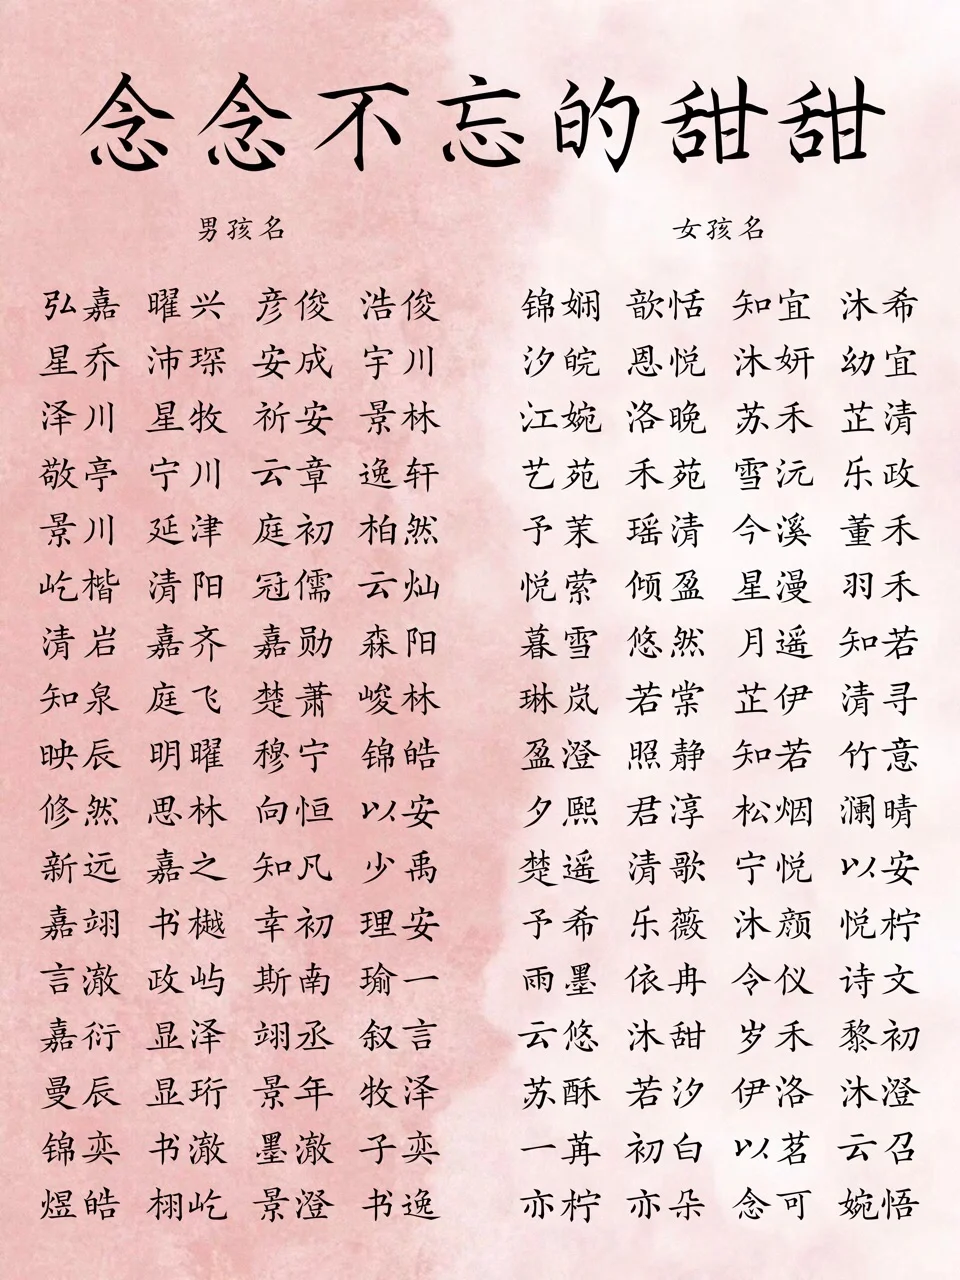 念念不忘的甜甜
男孩名 女孩名
弘嘉 曜兴 彦俊 浩俊 锦娴 歆恬 知宜 沐希
星乔 沛琛 安成 宇川 汐皖 恩悦 沐妍 幼宜
泽川 星牧 祈安 景林 江婉 洛晚 苏禾 芷清
敬亭 宁川 云章 逸轩 艺苑 禾苑 雪沅 乐政
景川 延津 庭初 柏然 予茉 瑶清 今溪 董禾
屹楷 清阳 冠儒 云灿 悦萦 倾盈 星漫 羽禾
清岩 嘉齐 嘉勋 森阳 暮雪 悠然 月遥 知若
知泉 庭飞 楚萧 峻林 琳岚 若棠 芷伊 清寻
映辰 明曜 穆宁 锦皓 盈澄 照静 知若 竹意
修然 思林 向恒 以安 夕熙 君淳 松烟 澜晴
新远 嘉之 知凡 少禹 楚遥 清歌 宁悦 以安
嘉翊 书樾 幸初 理安 予希 乐薇 沐颜 悦柠
言澈 政屿 斯南 瑜一 雨墨 依冉 令仪 诗文
嘉衍 显泽 翊丞 叙言 云悠 沐甜 岁禾 黎初
曼辰 显珩 景年 牧泽 苏酥 若汐 伊洛 沐澄
锦奕 书澈 墨澈 子奕 一苒 初白 以茗 云召
煜皓 栩屹 景澄 书逸 亦柠 亦朵 念可 婉悟